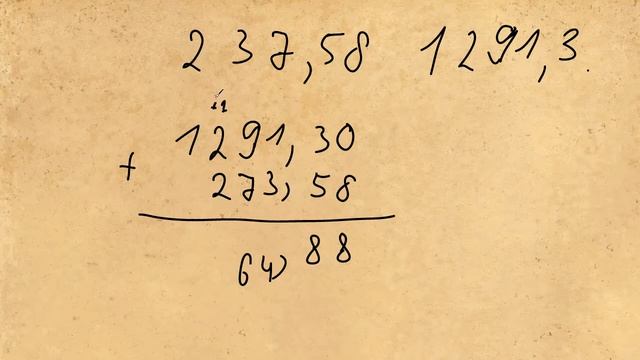 237,58 1291,3.
1
1291,30
+ 273,58
64,88